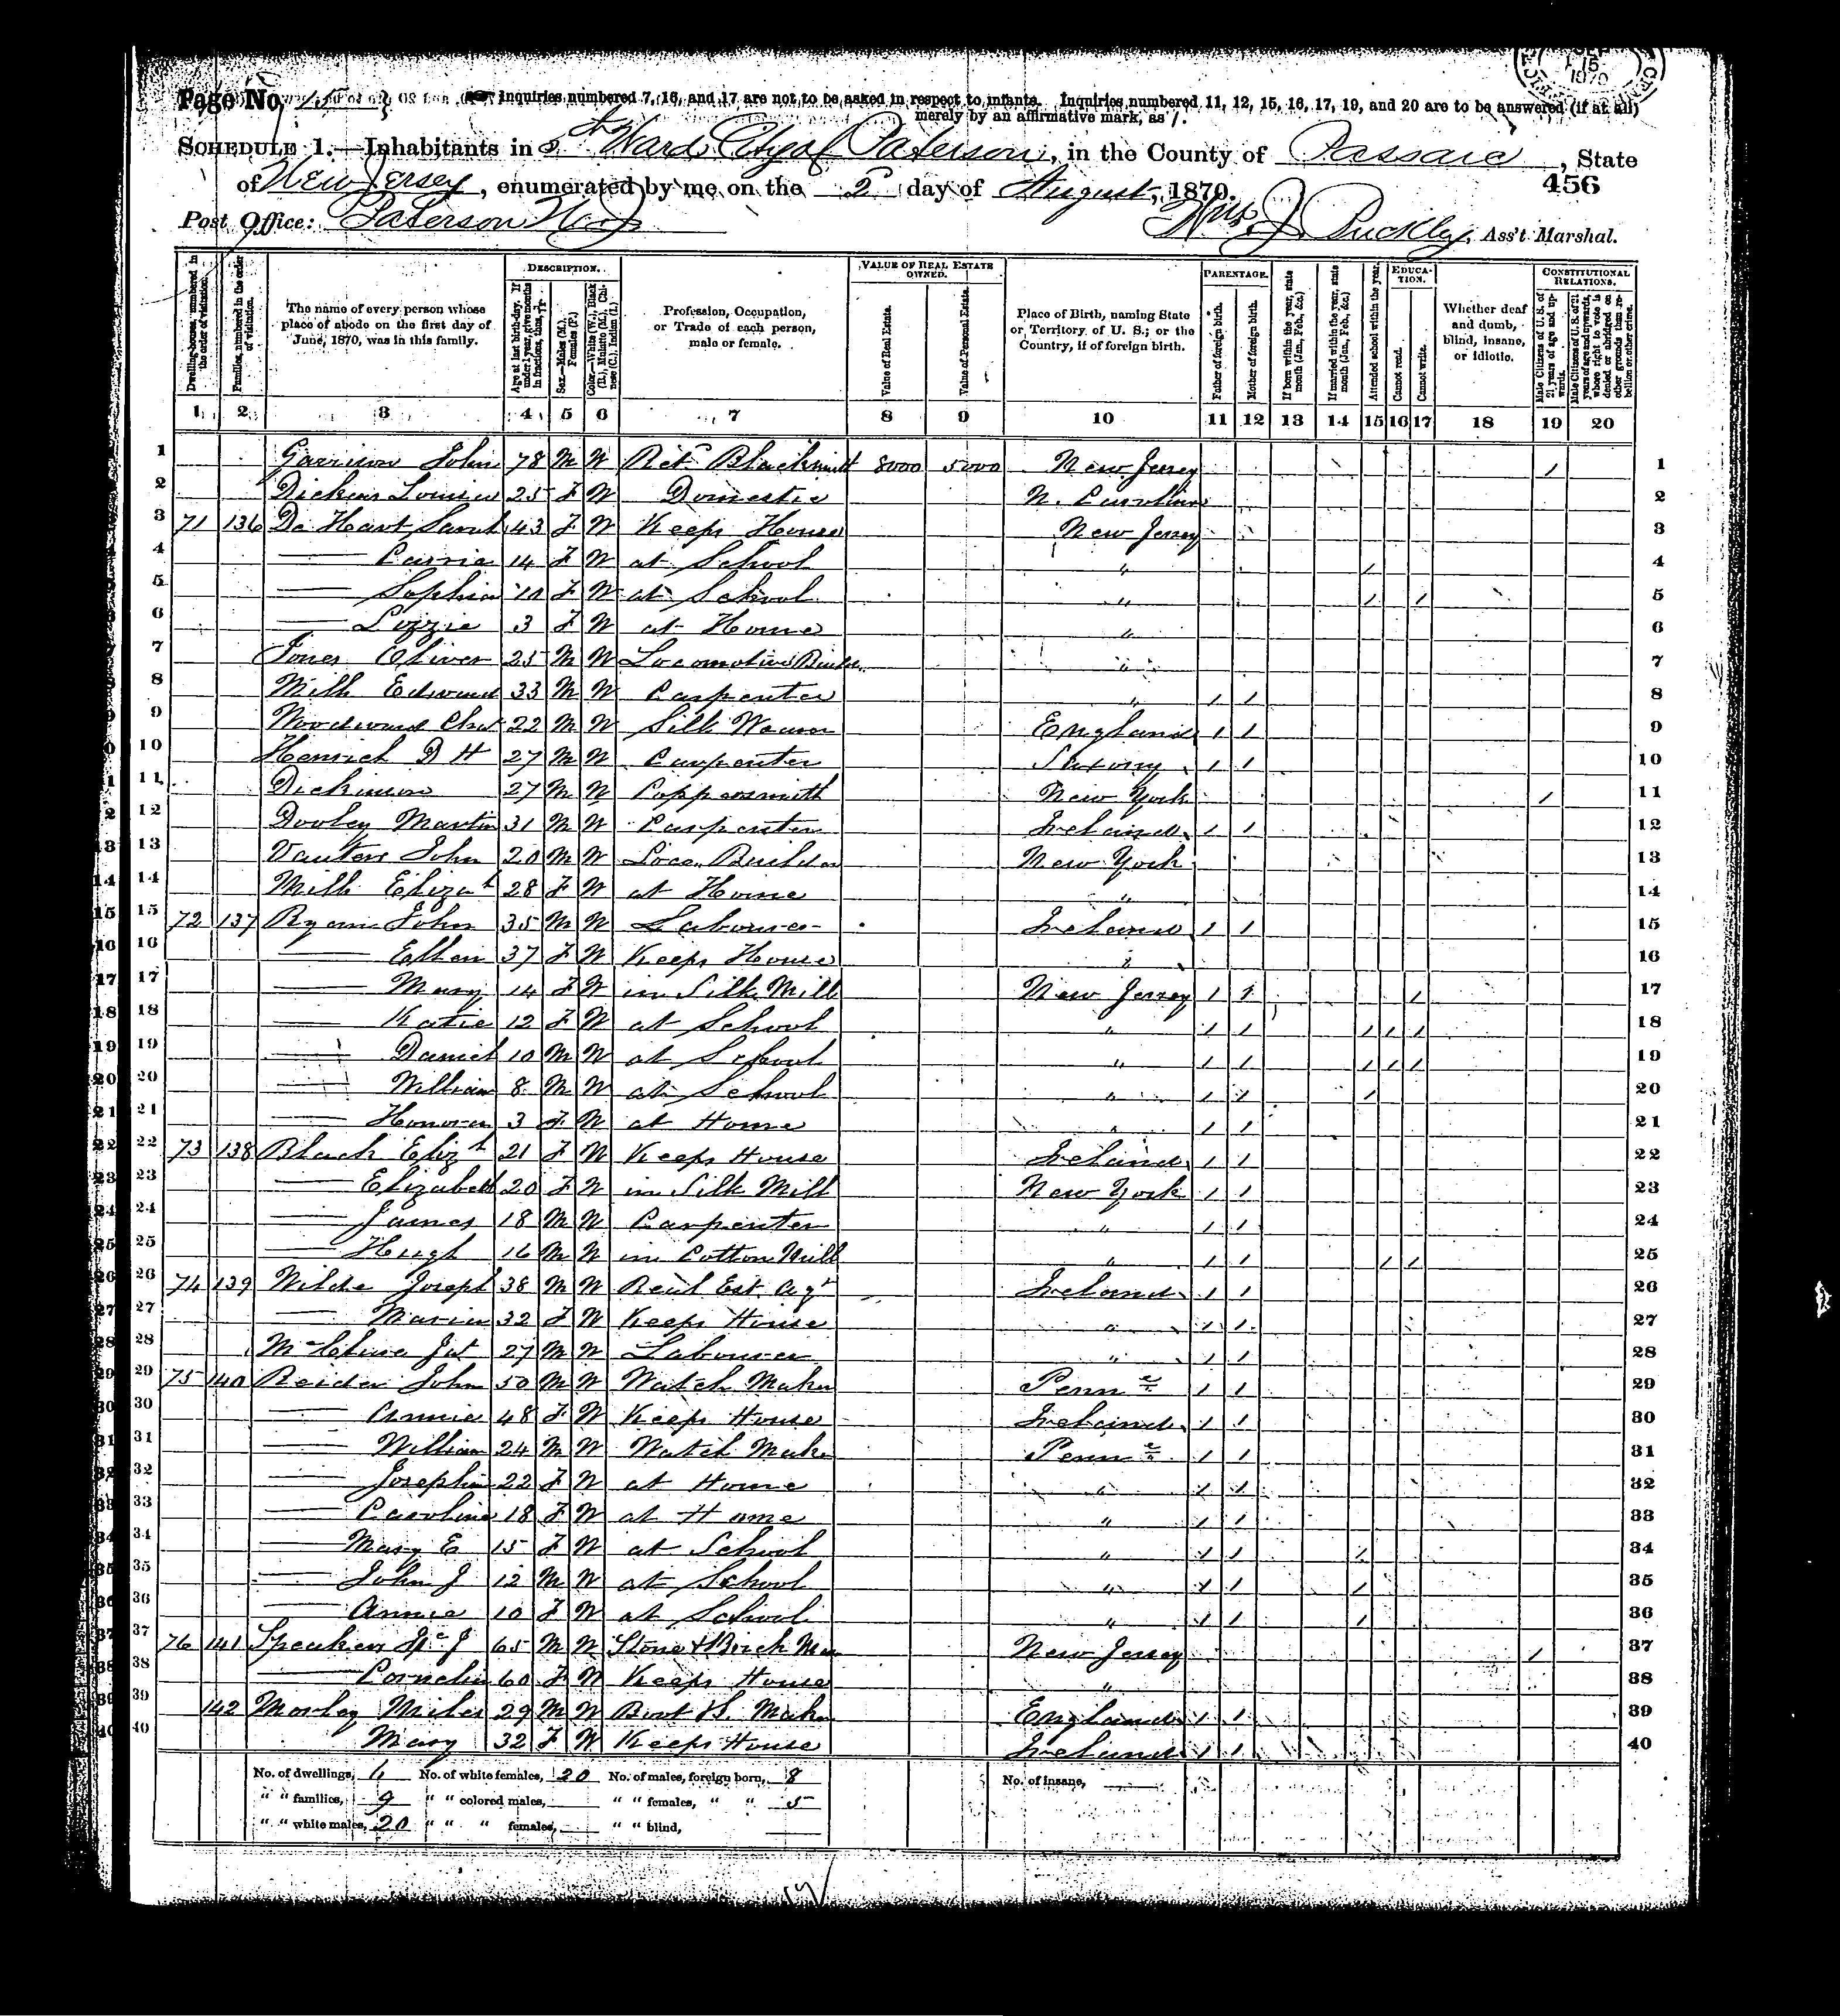 Page No. 15
Inquiries numbered 7, 16, and 17 are not to be asked in respect to infants. Inquiries numbered 11, 12, 15, 16, 17, 19, and 20 are to be answered (if at all)
merely by an affirmative mark, as /.
SCHEDULE 1.—Inhabitants in 5th Ward City of Paterson, in the County of Passaic, State
of New Jersey, enumerated by me on the 2 day of August, 1870.
456
Post Office: Paterson N. J.
Wm. J. Buckley, Ass't Marshal.
DESCRIPTION. VALUE OF REAL ESTATE OWNED. PARENTAGE. EDUCATION. CONSTITUTIONAL RELATIONS.
Dwelling-houses, numbered in the order of visitation.
Families, numbered in the order of visitation.
The name of every person whose place of abode on the first day of June, 1870, was in this family.
Age at last birth-day. If under 1 year, give months in fractions, thus,
Sex.—Males (M.), Females (F.)
Color.—White (W.), Black (B.), Mulatto (M.), Chinese (C.), Indian (I.)
Profession, Occupation, or Trade of each person, male or female.
Value of Real Estate.
Value of Personal Estate.
Place of Birth, naming State or Territory of U. S.; or the Country, if of foreign birth.
Father of foreign birth.
Mother of foreign birth.
If born within the year, state month (Jan., Feb., &c.)
If married within the year, state month (Jan., Feb., &c.)
Attended school within the year.
Cannot read.
Cannot write.
Whether deaf and dumb, blind, insane, or idiotic.
Male Citizens of U. S. of 21 years of age and upwards.
Male Citizens of U. S. of 21 years of age and upwards, whose right to vote is denied or abridged on other grounds than rebellion or other crime.
1 2 3 4 5 6 7 8 9 10 11 12 13 14 15 16 17 18 19 20
1 Garrison John 78 M W Ret. Blacksmith 8000 5000 New Jersey / 1
2 Louisa 25 F W Domestic N. Carolina 2
3 71 136 De Hart Sarah 43 F W Keeps House New Jersey 3
4 — Carrie 14 F W at School " / 4
5 — Sophia 10 F W at School " / / 5
6 — Lizzie 3 F W at Home " 6
7 Jones Oliver 25 M W Locomotive Builder " 7
8 Mills Edward 33 M W Carpenter " / / 8
9 Woodward Chas 22 M W Silk Weaver England / / 9
10 Henrich D H 27 M W Carpenter Saxony / / 10
11 Dickinson 27 M W Coppersmith New York / 11
12 Dooley Martin 31 M W Carpenter Ireland / / 12
13 John 20 M W Loco. Builder New York 13
14 Mills Elizath 28 F W at Home " 14
15 72 137 Ryan John 35 M W Labourer Ireland / / 15
16 — Ellen 37 F W Keeps House " 16
17 — Mary 14 F W in Silk Mill New Jersey / / / 17
18 — Katie 12 F W at School " / / / / / 18
19 — Daniel 10 M W at School " / / / / / 19
20 — William 8 M W at School " / / / 20
21 — Honora 3 F W at Home " / / 21
22 73 138 Black Elizth 21 F W Keeps House Ireland / / 22
23 — Elizabeth 20 F W in Silk Mill New York / / 23
24 — James 18 M W Carpenter " / / 24
25 — Hugh 16 M W in Cotton Mill " / / / / 25
26 74 139 Wilde Joseph 38 M W Real Est. Agt Ireland / / 26
27 — Maria 32 F W Keeps House " / / 27
28 McClure 27 M W Labourer " / / 28
29 75 140 Reider John 50 M W Watch Maker Penna / / 29
30 — Annie 48 F W Keeps House Ireland / / 30
31 — William 24 M W Watch Maker Penna / / 31
32 — Josephin 22 F W at Home " / / 32
33 — Caroline 18 F W at Home " / / 33
34 — Mary E 15 F W at School " / / / 34
35 — John J 12 M W at School " / / / 35
36 — Annie 10 F W at School " / / / 36
37 76 141 65 M W Stone & Brick Man New Jersey / 37
38 — Cornelia 60 F W Keeps House " 38
39 142 Morley Miles 29 M W Boot & S. Maker England / / 39
40 Mary 32 F W Keeps House Ireland / / 40
No. of dwellings, 6 No. of white females, 20 No. of males, foreign born, 8 No. of insane,
" " families, 9 " " colored males, " " females, " " 5
" " white males, 20 " " " females, " " blind,